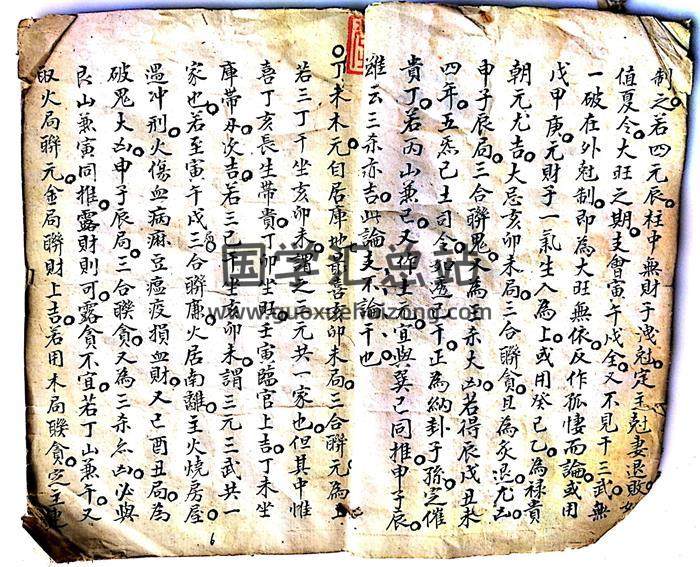 制之若四元辰柱中無財子洩尅定主尅妻退敗如
值夏令大旺之期支會寅午戌全又不見干三武無
一破在外尅制即為大旺無依反作孤悽而論或用
戊甲庚元財子一氣生入為上或用癸己乙為禄貴
朝元尤吉大忌亥卯未局三合聯貪且為炙退尤凶
申子辰局三合聯鬼又為三杀大凶若得辰戌丑未
四年五炁己土司令卻透壬干正為納卦子孫定催
貴丁若丙山兼巳又仰士元宜與巽巳同推申子辰
雖云三杀亦吉此論支不論干也
丁未木元自居庫地最喜亥卯未局三合聯元為上
若三丁干坐亥卯未謂之三元共一家也但其中惟
喜丁亥長生帶貴丁卯坐旺壬寅臨官上吉丁未坐
庫帶刃次吉若三己干坐亥卯未謂三元三武共一
家也若至寅午戌三合聯廉火居南離主火燒房屋
遇冲刑火傷血病麻豆瘟疫損血財又巳酉丑局為
破鬼大凶申子辰局三合聯貪又為三杀亦凶必與
艮山兼寅同推露財則可露貪不宜若丁山兼午又
取火局聯元金局聯財上吉若用木局聯貪定主
国学汇总站
www.guoxuehuizong.com
6